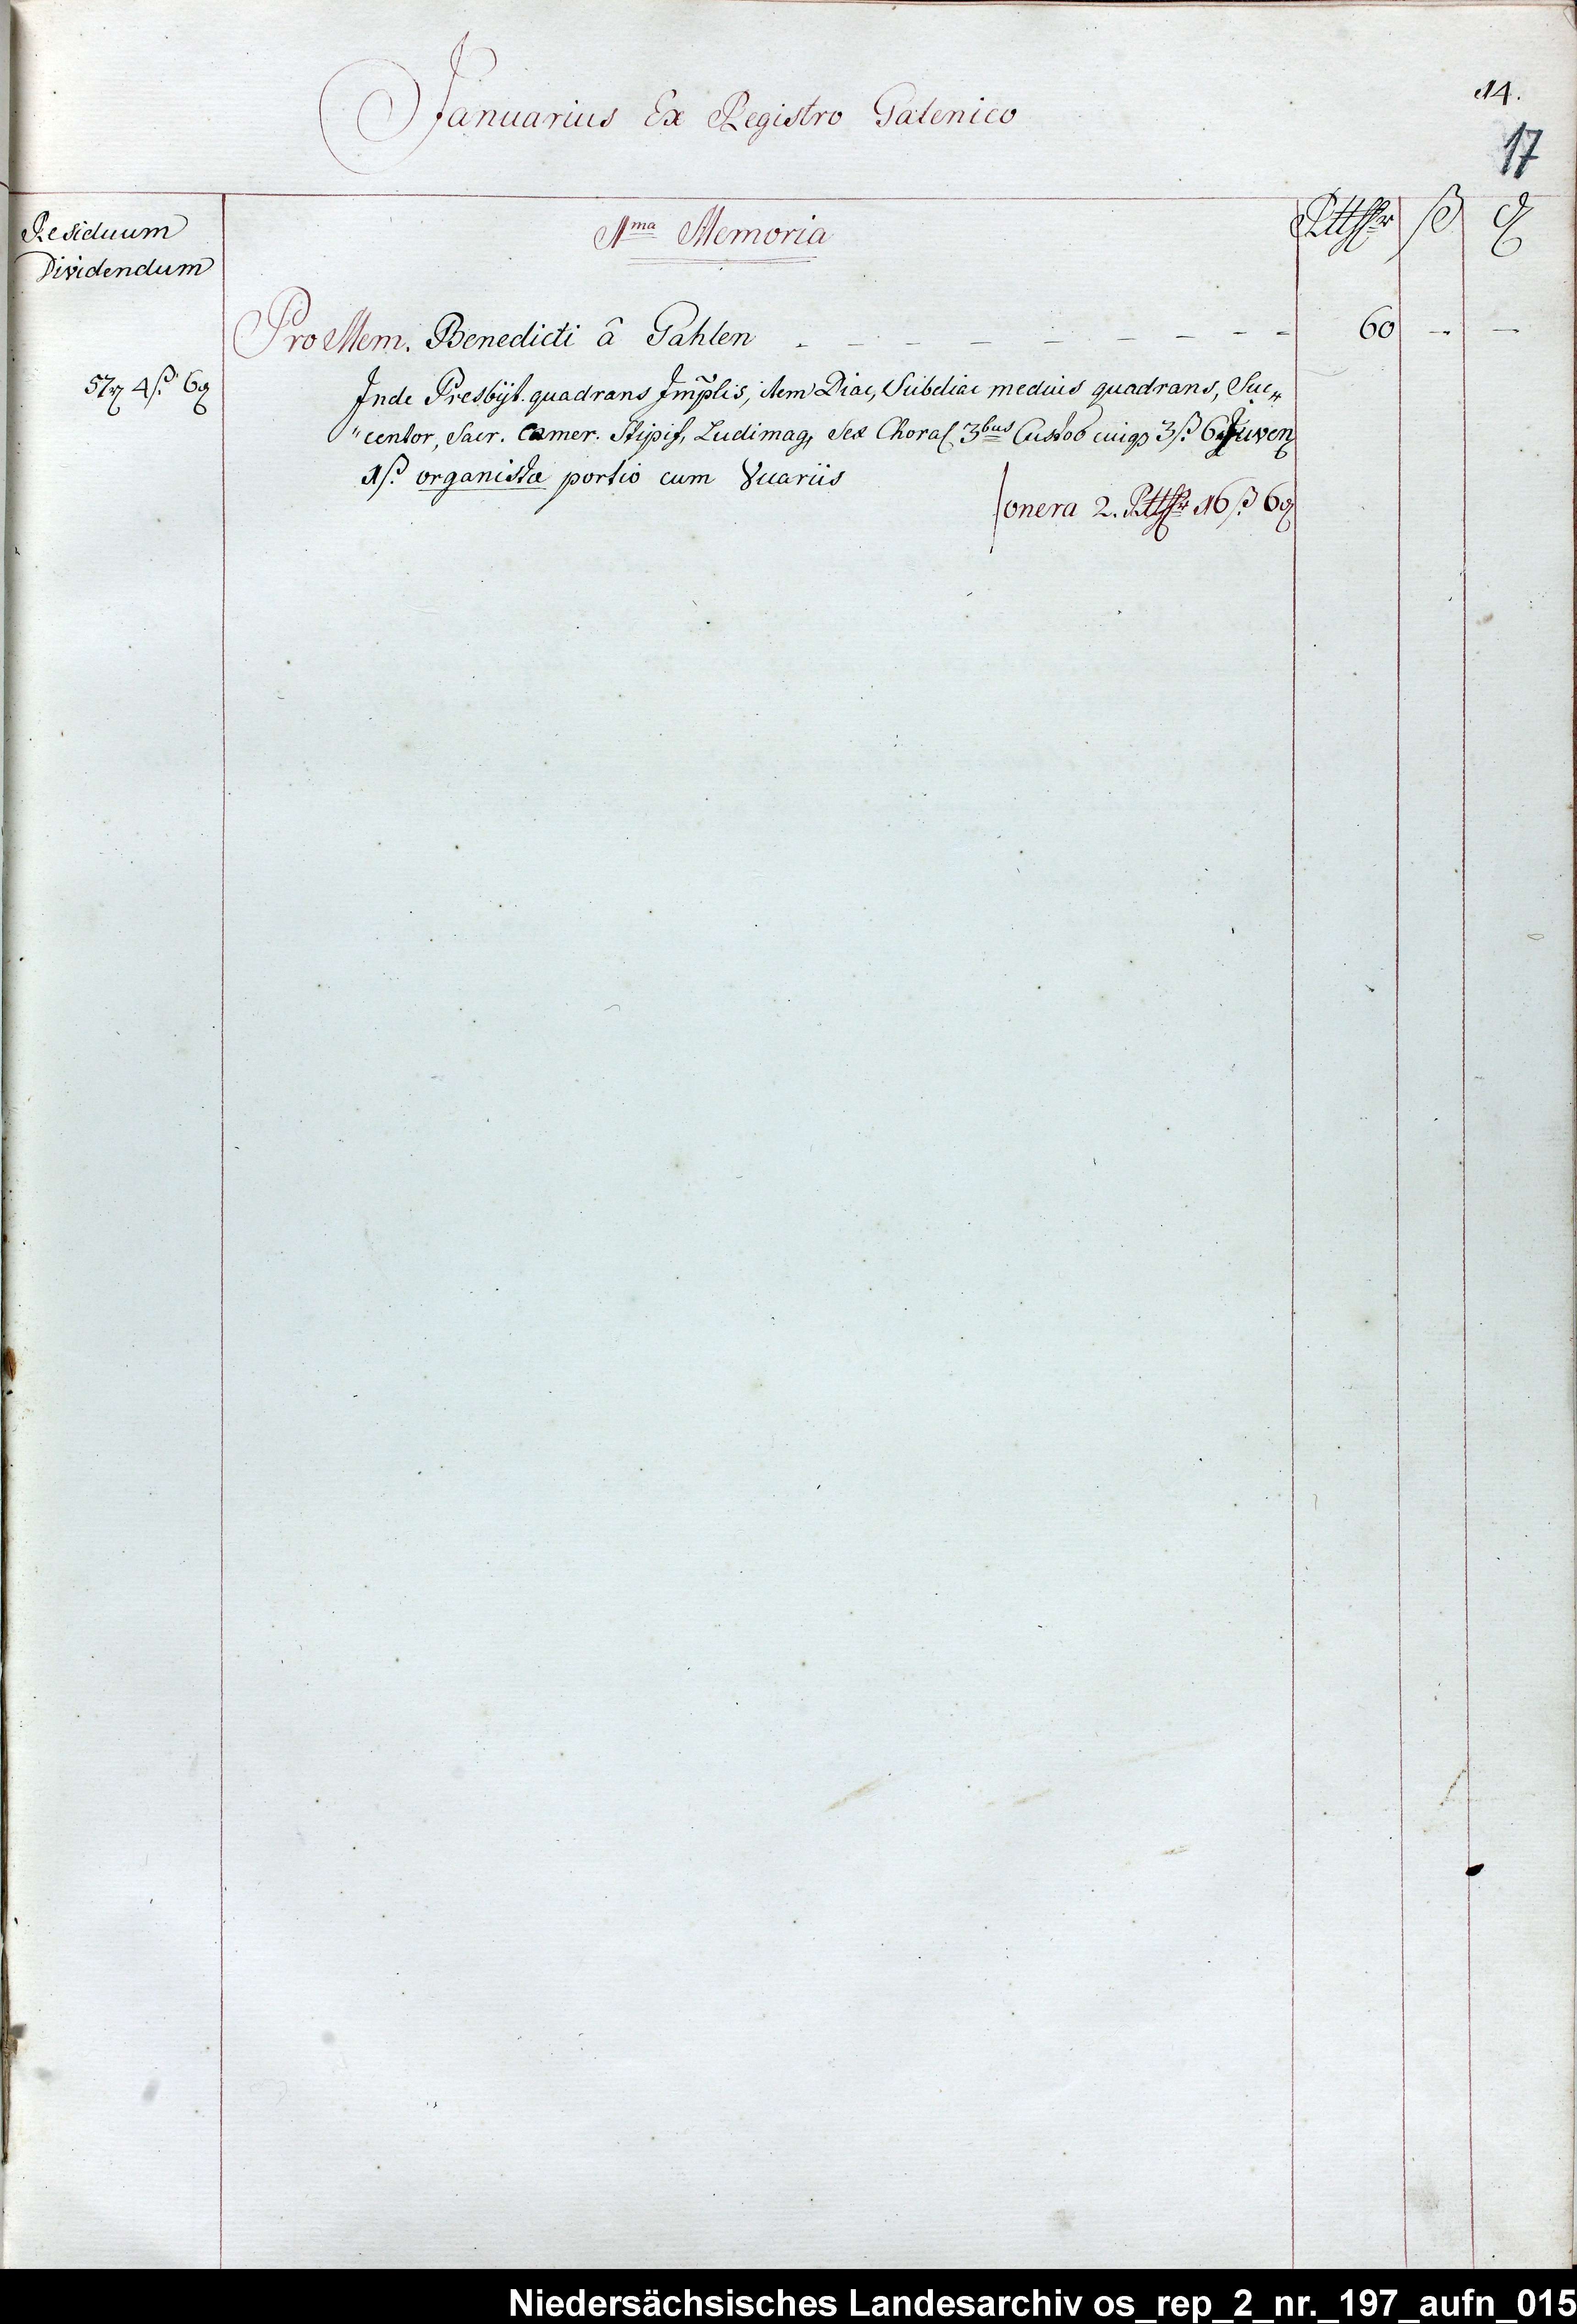 14.
Januarius Ex Registro Galenico
17
Residuum
Dividendum
1ma Memoria
Rtthlr ß ₰
Pro Mem. Benedicti â Gahlen - - - - - - - - - 60 - -
57 4ß 6₰
Inde Presbÿt. quadrans Impl̃is, item Diac, Subdiac medius quadrans, Suc„
„centor, Sacr. Camer. Stipif, Ludimag, Sex Choral 3bus Custod 3ß. 6₰ Juven
1ß. organistæ portio cum
onera 2. Rtthlr 16ß 6₰
Niedersächsisches Landesarchiv os_rep_2_nr._197_aufn_015